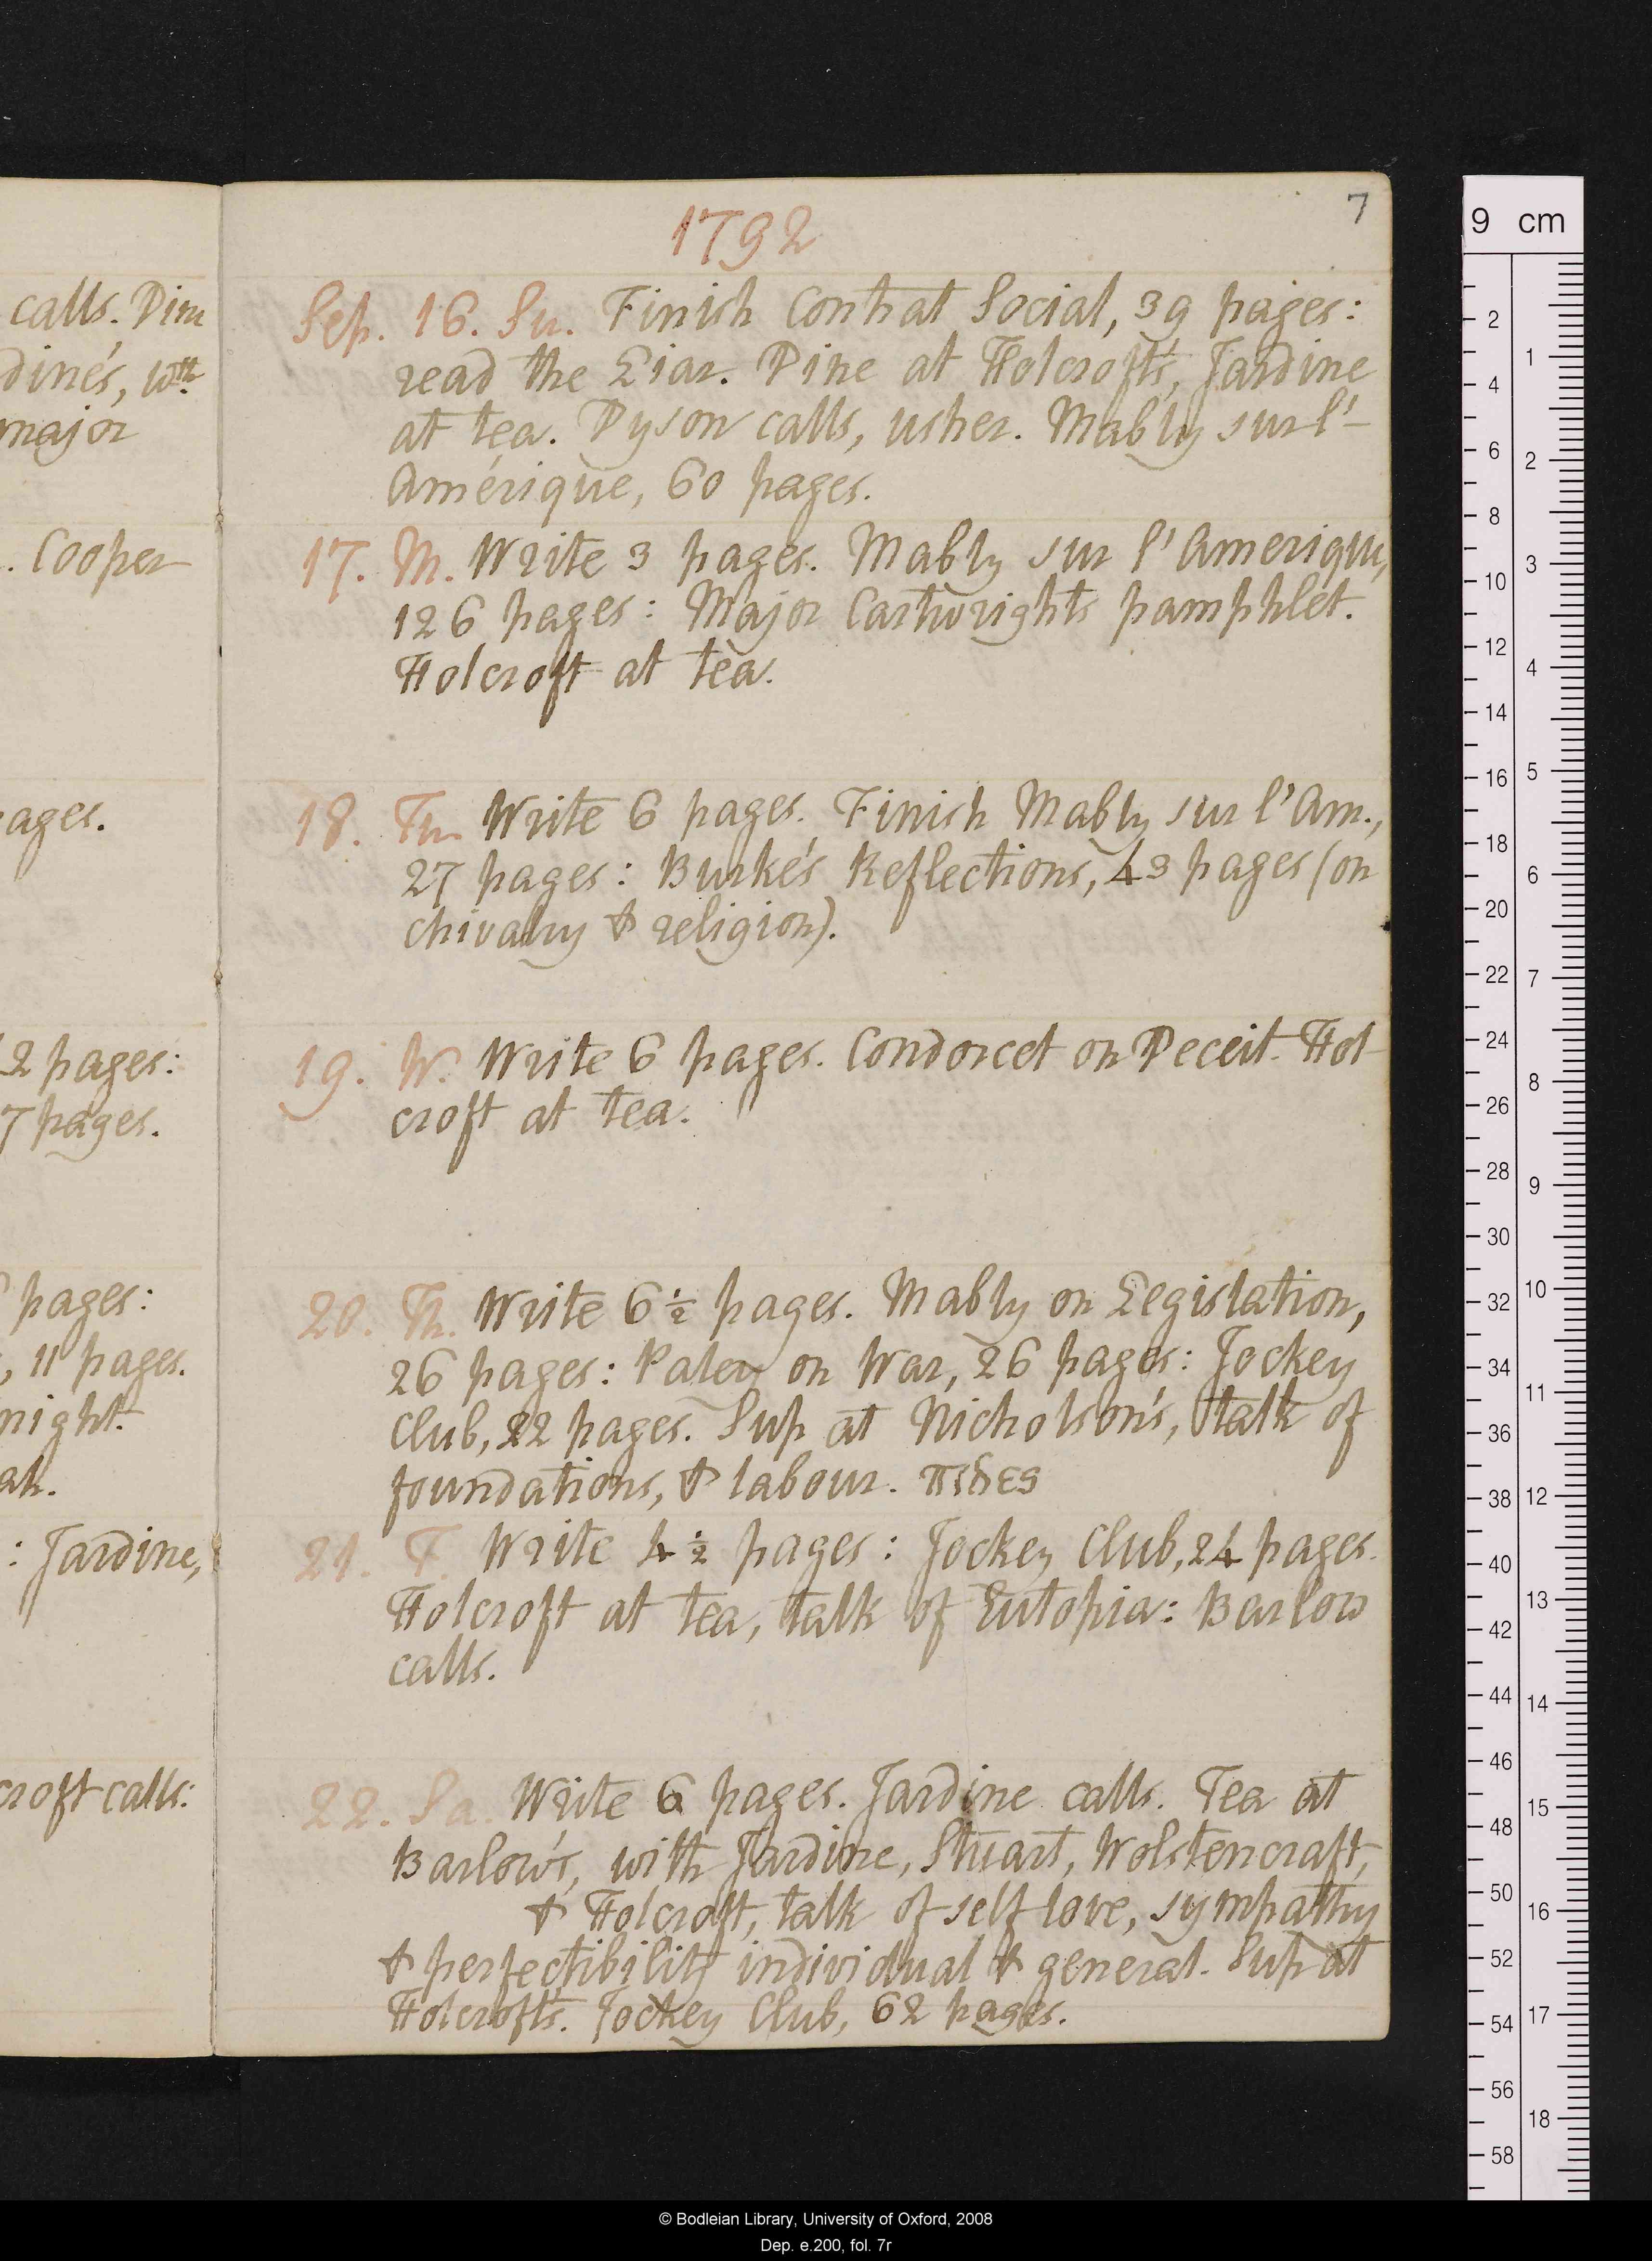 7
1792
calls. Din
dine's, wth
major
. Cooper
ages.
2 pages:
7 pages.
pages:
, 11 pages.
night.
: Jardine,
croft calls:
Sep. 16. Su. Finish Contrat Social, 39 pages:
read the Liar. Dine at Holcroft's, Jardine
at tea. Dyson calls, usher. Mably sur l'-
Amérique, 60 pages.
17. M. Write 3 pages. Mably sur l'Amerique,
126 pages: Major Cartwrights pamphlet.
Holcroft at tea.
18. Tu. Write 6 pages. Finish Mably sur l'Am.,
27 pages: Burke's Reflections, 43 pages (on
chivalry & religion).
19. W. Write 6 pages. Condorcet on Deceit. Hol-
croft at tea.
20. Th. Write 6½ pages. Mably on Legislation,
26 pages: Paley on War, 26 pages: Jockey
Club, 22 pages. Sup at Nicholson's, talk of
foundations, & labour.
21. F. Write 4½ pages: Jockey Club, 24 pages.
Holcroft at tea, talk of Eutopia: Barlow
calls.
22. Sa. Write 6 pages. Jardine calls. Tea at
Barlow's, with Jardine, Stuart, Wolstencraft,
& Holcroft, talk of self love, sympathy
& perfectibility individual & general. Sup at
Holcroft's. Jockey Club, 62 pages.
9 cm
2
4
6
8
10
12
14
16
18
20
22
24
26
28
30
32
34
36
38
40
42
44
46
48
50
52
54
56
58
1
2
3
4
5
6
7
8
9
10
11
12
13
14
15
16
17
18
© Bodleian Library, University of Oxford, 2008
Dep. e.200, fol. 7r